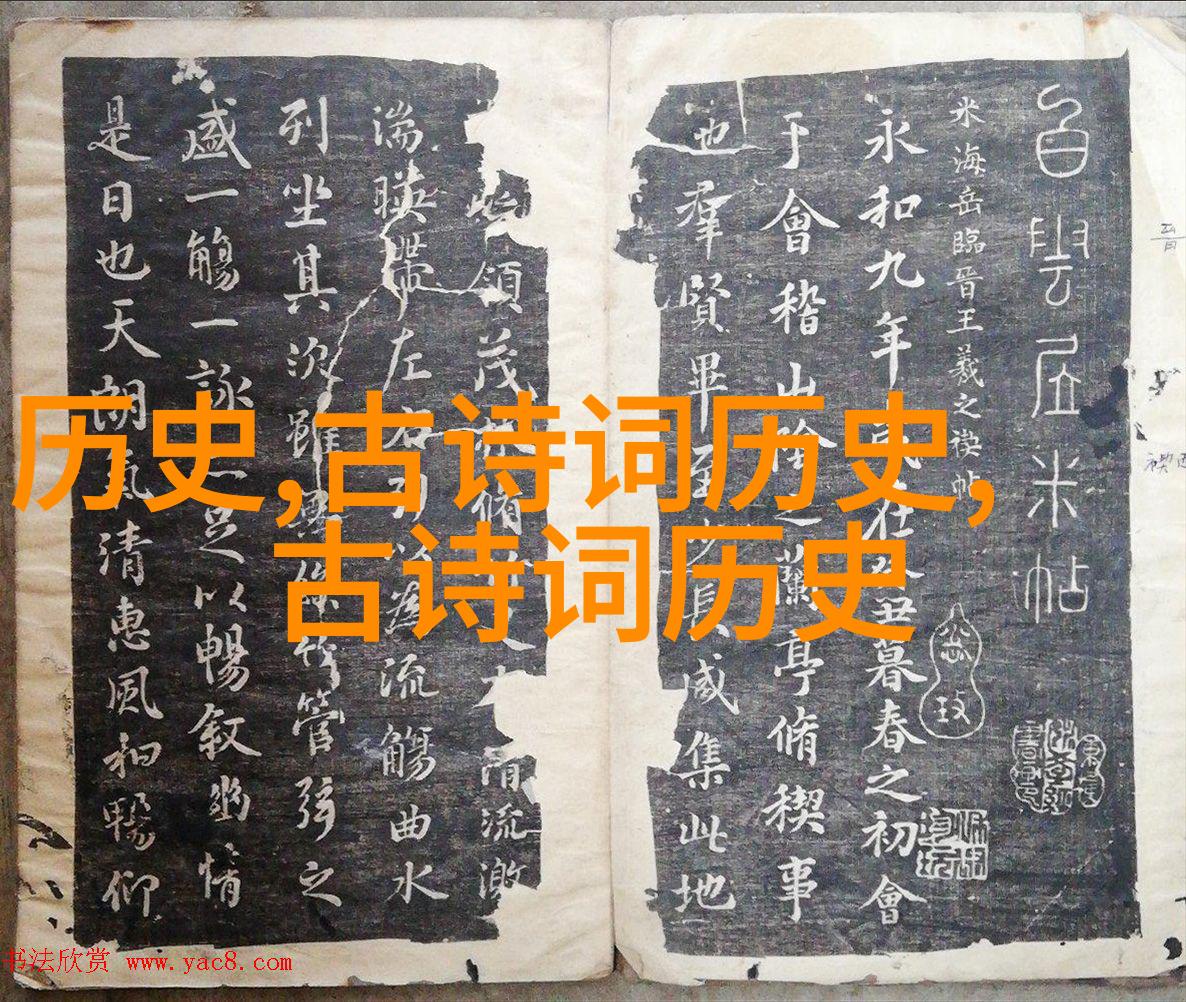 历史,古诗词历史,
古诗词历史
白雲居米帖
米海岳臨晋王羲之禊帖
永和九年在丑暮春之初會
于會稽山陰之蘭亭脩禊事
也羣賢畢至咸集此地
領茂脩清流激
湍暎帶左右以為流觴曲水
列坐其次雖無管弦之
盛一觴一詠足以暢叙幽情
是日也天朗氣清惠風和暢仰
书法欣赏 www.yac8.com